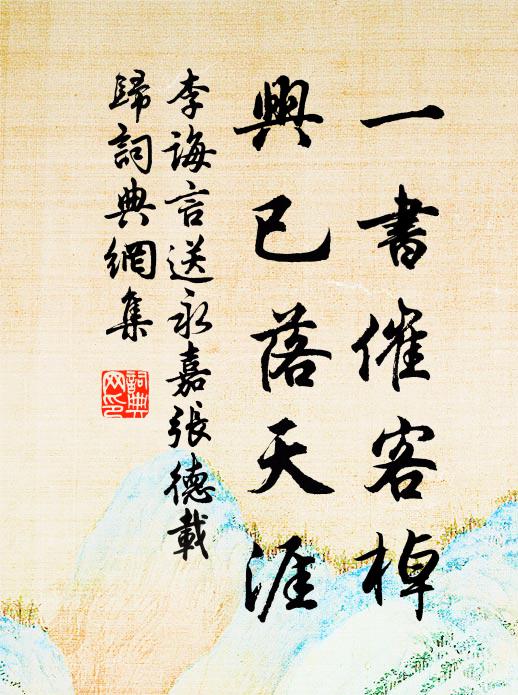 一書催客棹
興已落天涯
李誨言送永嘉張德載
歸詞典網集
詞典
网印